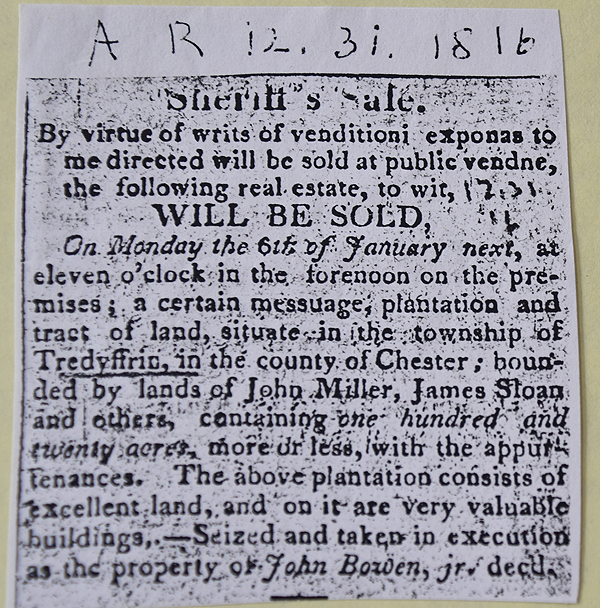 A R 12.31.1816
Sheriff's Sale.
By virtue of writs of venditioni exponas to
me directed will be sold at public vendne,
the following real estate, to wit, 12.31
WILL BE SOLD, 16
On Monday the 6th of January next, at
eleven o'clock in the forenoon on the pre-
mises; a certain messuage, plantation and
tract of land, situate in the township of
Tredyffrin, in the county of Chester; boun-
ded by lands of John Miller, James Sloan
and others, containing one hundred and
twenty acres, more or less, with the appur-
tenances. The above plantation consists of
excellent land, and on it are very valuable
buildings,.—Seized and taken in execution
as the property of John Bowen, jr. decd.